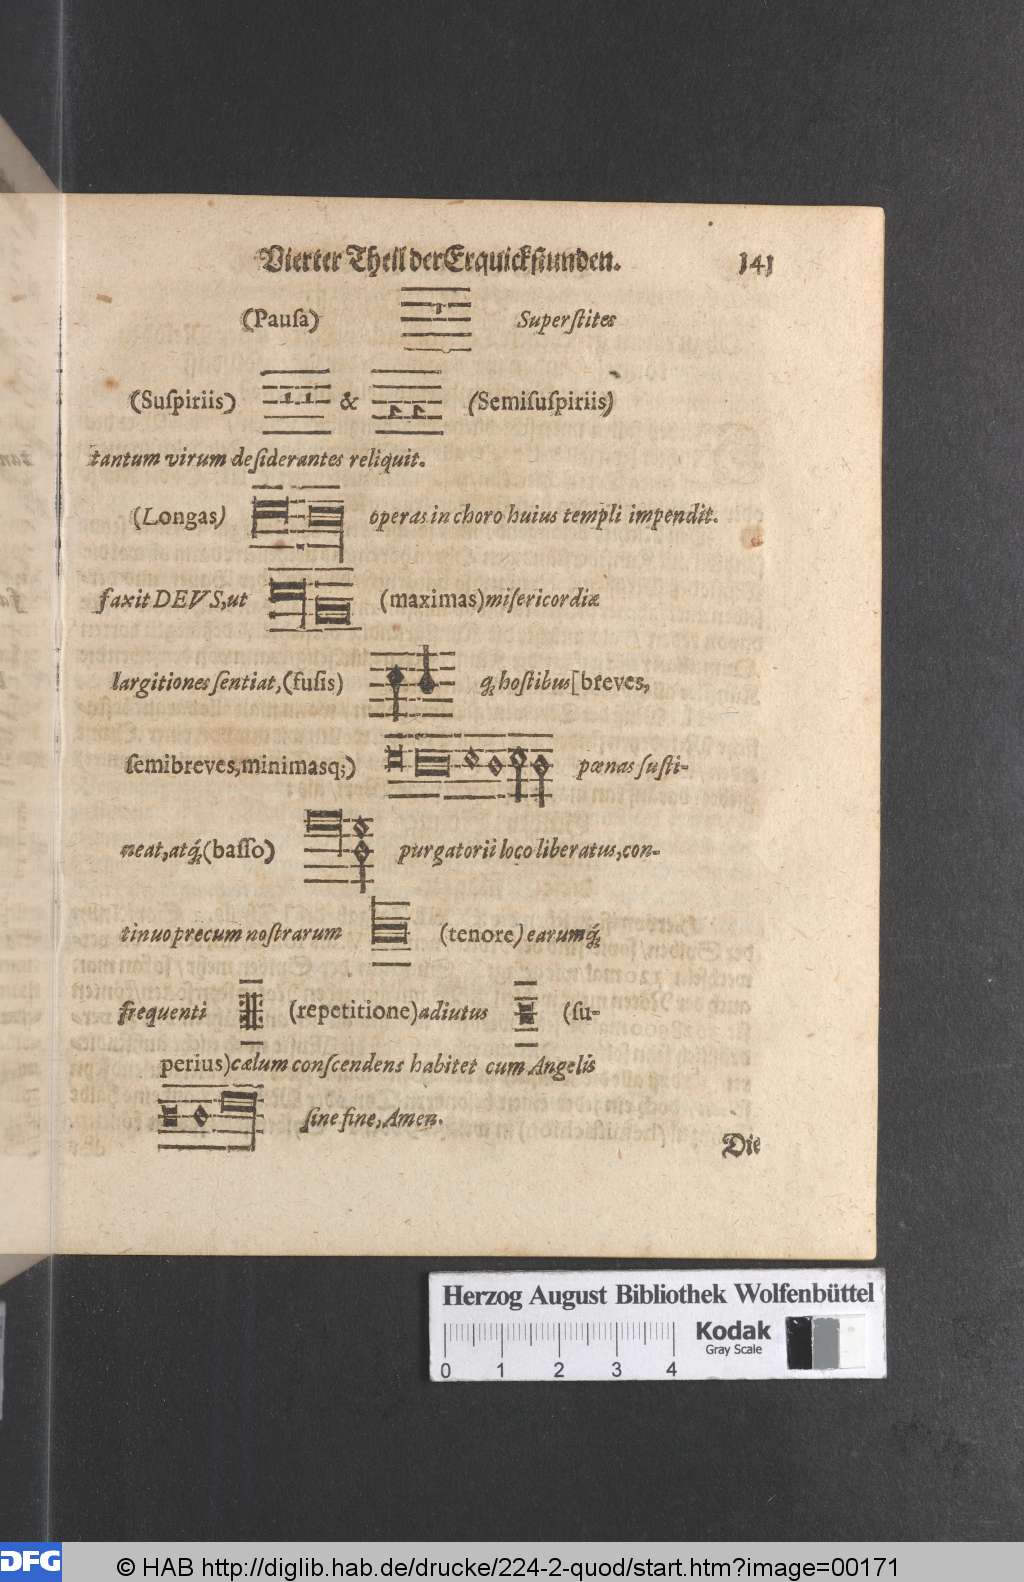 Vierter Theil der Erquickſtunden. 141
(Pauſa) Superſtites
(Suſpiriis) & (Semiſuſpiriis)
tantum virum deſiderantes reliquit.
(Longas) operas in choro huius templi impendit.
faxit DEVS, ut (maximas) miſericordiæ
largitiones ſentiat, (fuſis) q́; hoſtibus [breves,
ſemibreves, minimasq́;) pœnas ſuſti-
neat, atq́; (baſſo) purgatorii loco liberatus, con-
tinuo precum noſtrarum (tenore) earumq́;
frequenti (repetitione) adiutus (ſu-
perius) cælum conſcendens habitet cum Angelis
ſine fine, Amen.
Die
Herzog August Bibliothek Wolfenbüttel
Kodak
Gray Scale
0 1 2 3 4
DFG © HAB http://diglib.hab.de/drucke/224-2-quod/start.htm?image=00171